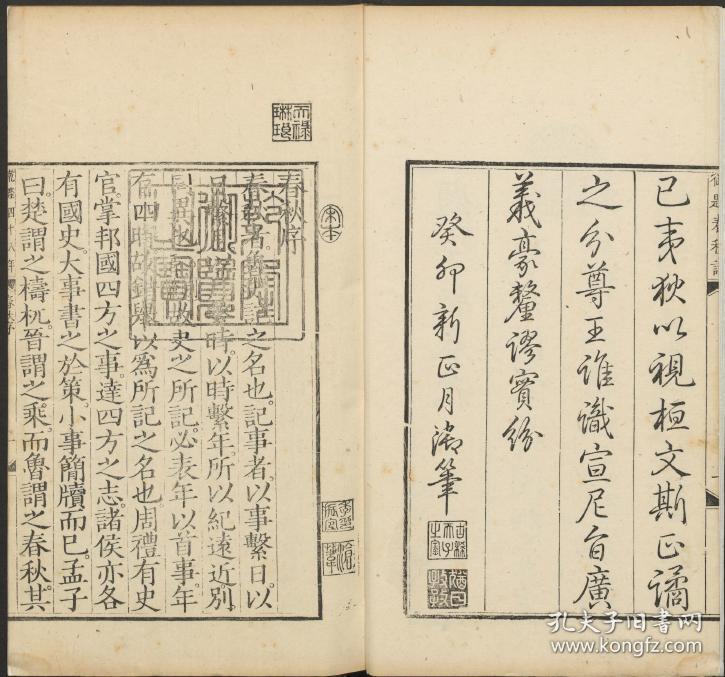 御題春秋詩
已夷狄以視桓文斯正譎
之分尊王誰識宣尼旨廣
義豪釐謬實紛
癸卯新正月御筆
古稀天子之寶
猶日孜孜
天祿琳琅
宋本
春秋序
春秋者魯史記之名也記事者以事繫日以
日繫月以月繫時以時繫年所以紀遠近別
同異也故史之所記必表年以首事年
有四時故錯舉以爲所記之名也周禮有史
官掌邦國四方之事達四方之志諸侯亦各
有國史大事書之於策小事簡牘而已孟子
曰楚謂之檮杌晉謂之乘而魯謂之春秋其
乾隆四十八年
孔夫子旧书网
www.kongfz.com